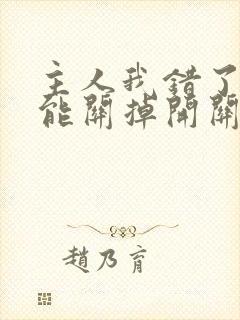 主人我錯了
能關掉開關
趙乃育